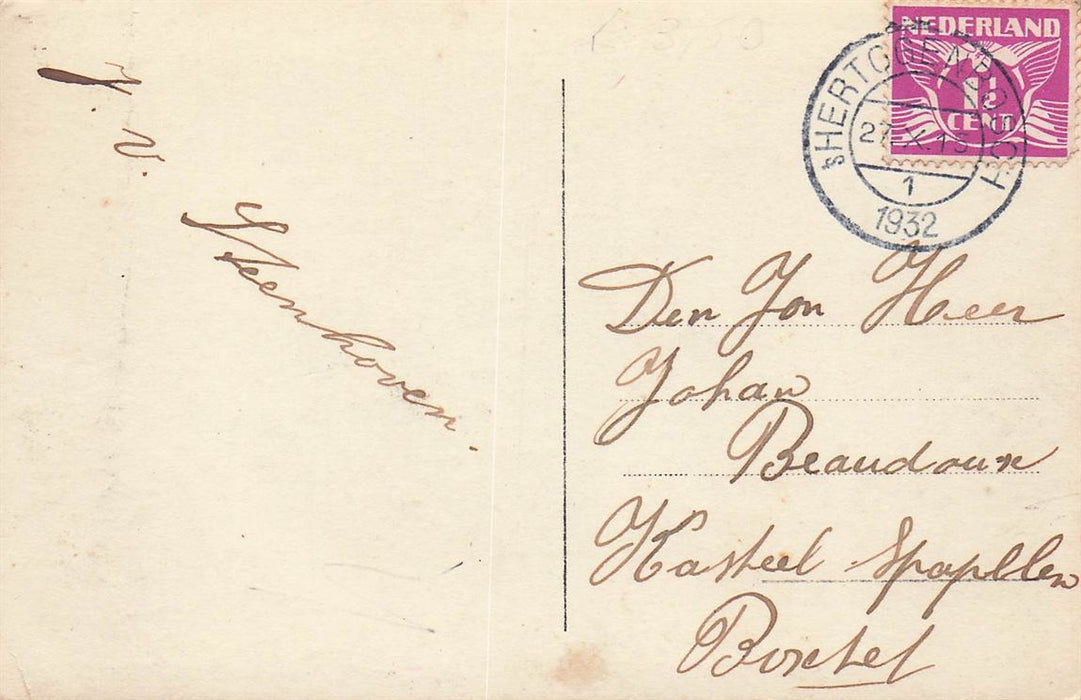 J. v. Steenhoven.
NEDERLAND
1½
CENT
'sHERTOGENBOSCH
27.X.15
1
1932
Den Jon Heer
Johan
Beaudoux
Kasteel
Boxtel